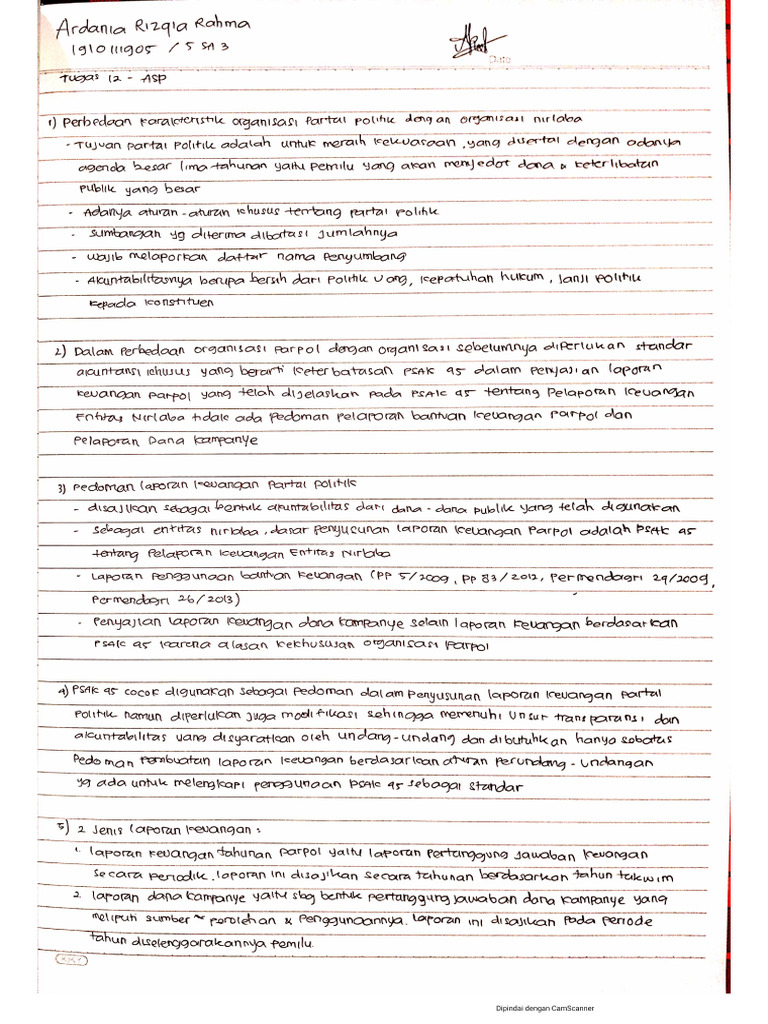 Ardania Rizqia Rahma
1910111905 / 5 SA 3
Date
Tugas 12 - ASP
1) Perbedaan karakteristik organisasi partai politik dengan organisasi nirlaba
- Tujuan partai politik adalah untuk meraih kekuasaan, yang disertai dengan adanya
agenda besar lima tahunan yaitu pemilu yang akan menyedot dana & keterlibatan
publik yang besar
- Adanya aturan-aturan khusus tentang partai politik
- Sumbangan yg diterima dibatasi jumlahnya
- Wajib melaporkan daftar nama penyumbang
- Akuntabilitasnya berupa bersih dari politik uang, kepatuhan hukum, janji politik
kepada konstituen
2) Dalam perbedaan organisasi parpol dengan organisasi sebelumnya diperlukan standar
akuntansi khusus yang berarti keterbatasan PSAK 45 dalam penyajian laporan
keuangan parpol yang telah dijelaskan pada PSAK 45 tentang Pelaporan Keuangan
Entitas Nirlaba tidak ada pedoman pelaporan bantuan keuangan parpol dan
pelaporan Dana kampanye
3) Pedoman laporan keuangan partai politik
- disajikan sebagai bentuk akuntabilitas dari dana-dana publik yang telah digunakan
- Sebagai entitas nirlaba, dasar penyusunan laporan keuangan parpol adalah PSAK 45
tentang Pelaporan Keuangan Entitas Nirlaba
- Laporan penggunaan bantuan keuangan (PP 5/2009, PP 83/2012, Permendagri 24/2009,
Permendagri 26/2013)
- Penyajian laporan keuangan dana kampanye selain laporan keuangan berdasarkan
PSAK 45 karena alasan kekhususan organisasi parpol
4) PSAK 45 cocok digunakan sebagai pedoman dalam penyusunan laporan keuangan partai
politik namun diperlukan juga modifikasi sehingga memenuhi unsur transparansi dan
akuntabilitas yang disyaratkan oleh undang-undang dan dibutuhkan hanya sebatas
pedoman pembuatan laporan keuangan berdasarkan aturan perundang-undangan
yg ada untuk melengkapi penggunaan PSAK 45 sebagai standar
5) 2 Jenis laporan keuangan:
1. laporan keuangan tahunan parpol yaitu laporan pertanggung jawaban keuangan
secara periodik. laporan ini disajikan secara tahunan berdasarkan tahun takwim
2. laporan dana kampanye yaitu sbg bentuk pertanggung jawaban dana kampanye yang
meliputi sumber ~ perolehan & penggunaannya. laporan ini disajikan pada periode
tahun diselenggarakannya pemilu.
KKY
Dipindai dengan CamScanner